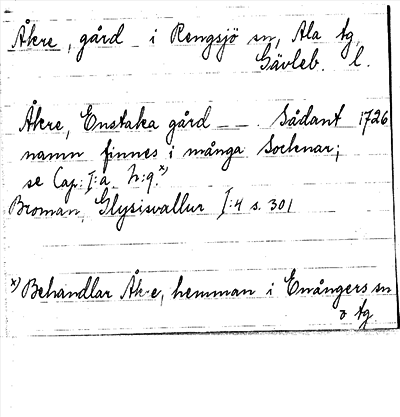 Åkre, gård i Rengsjö sn, Ala tg,
Gävleb. l.
Åkre, Enstaka gård _ _ . Sådant 1726
namn finnes i många Socknar;
se Cap: I:a. N:9.x)
Broman, Glysisvallur I:4 s. 301
x) Behandlar Åkre, hemman i Enångers sn
o tg